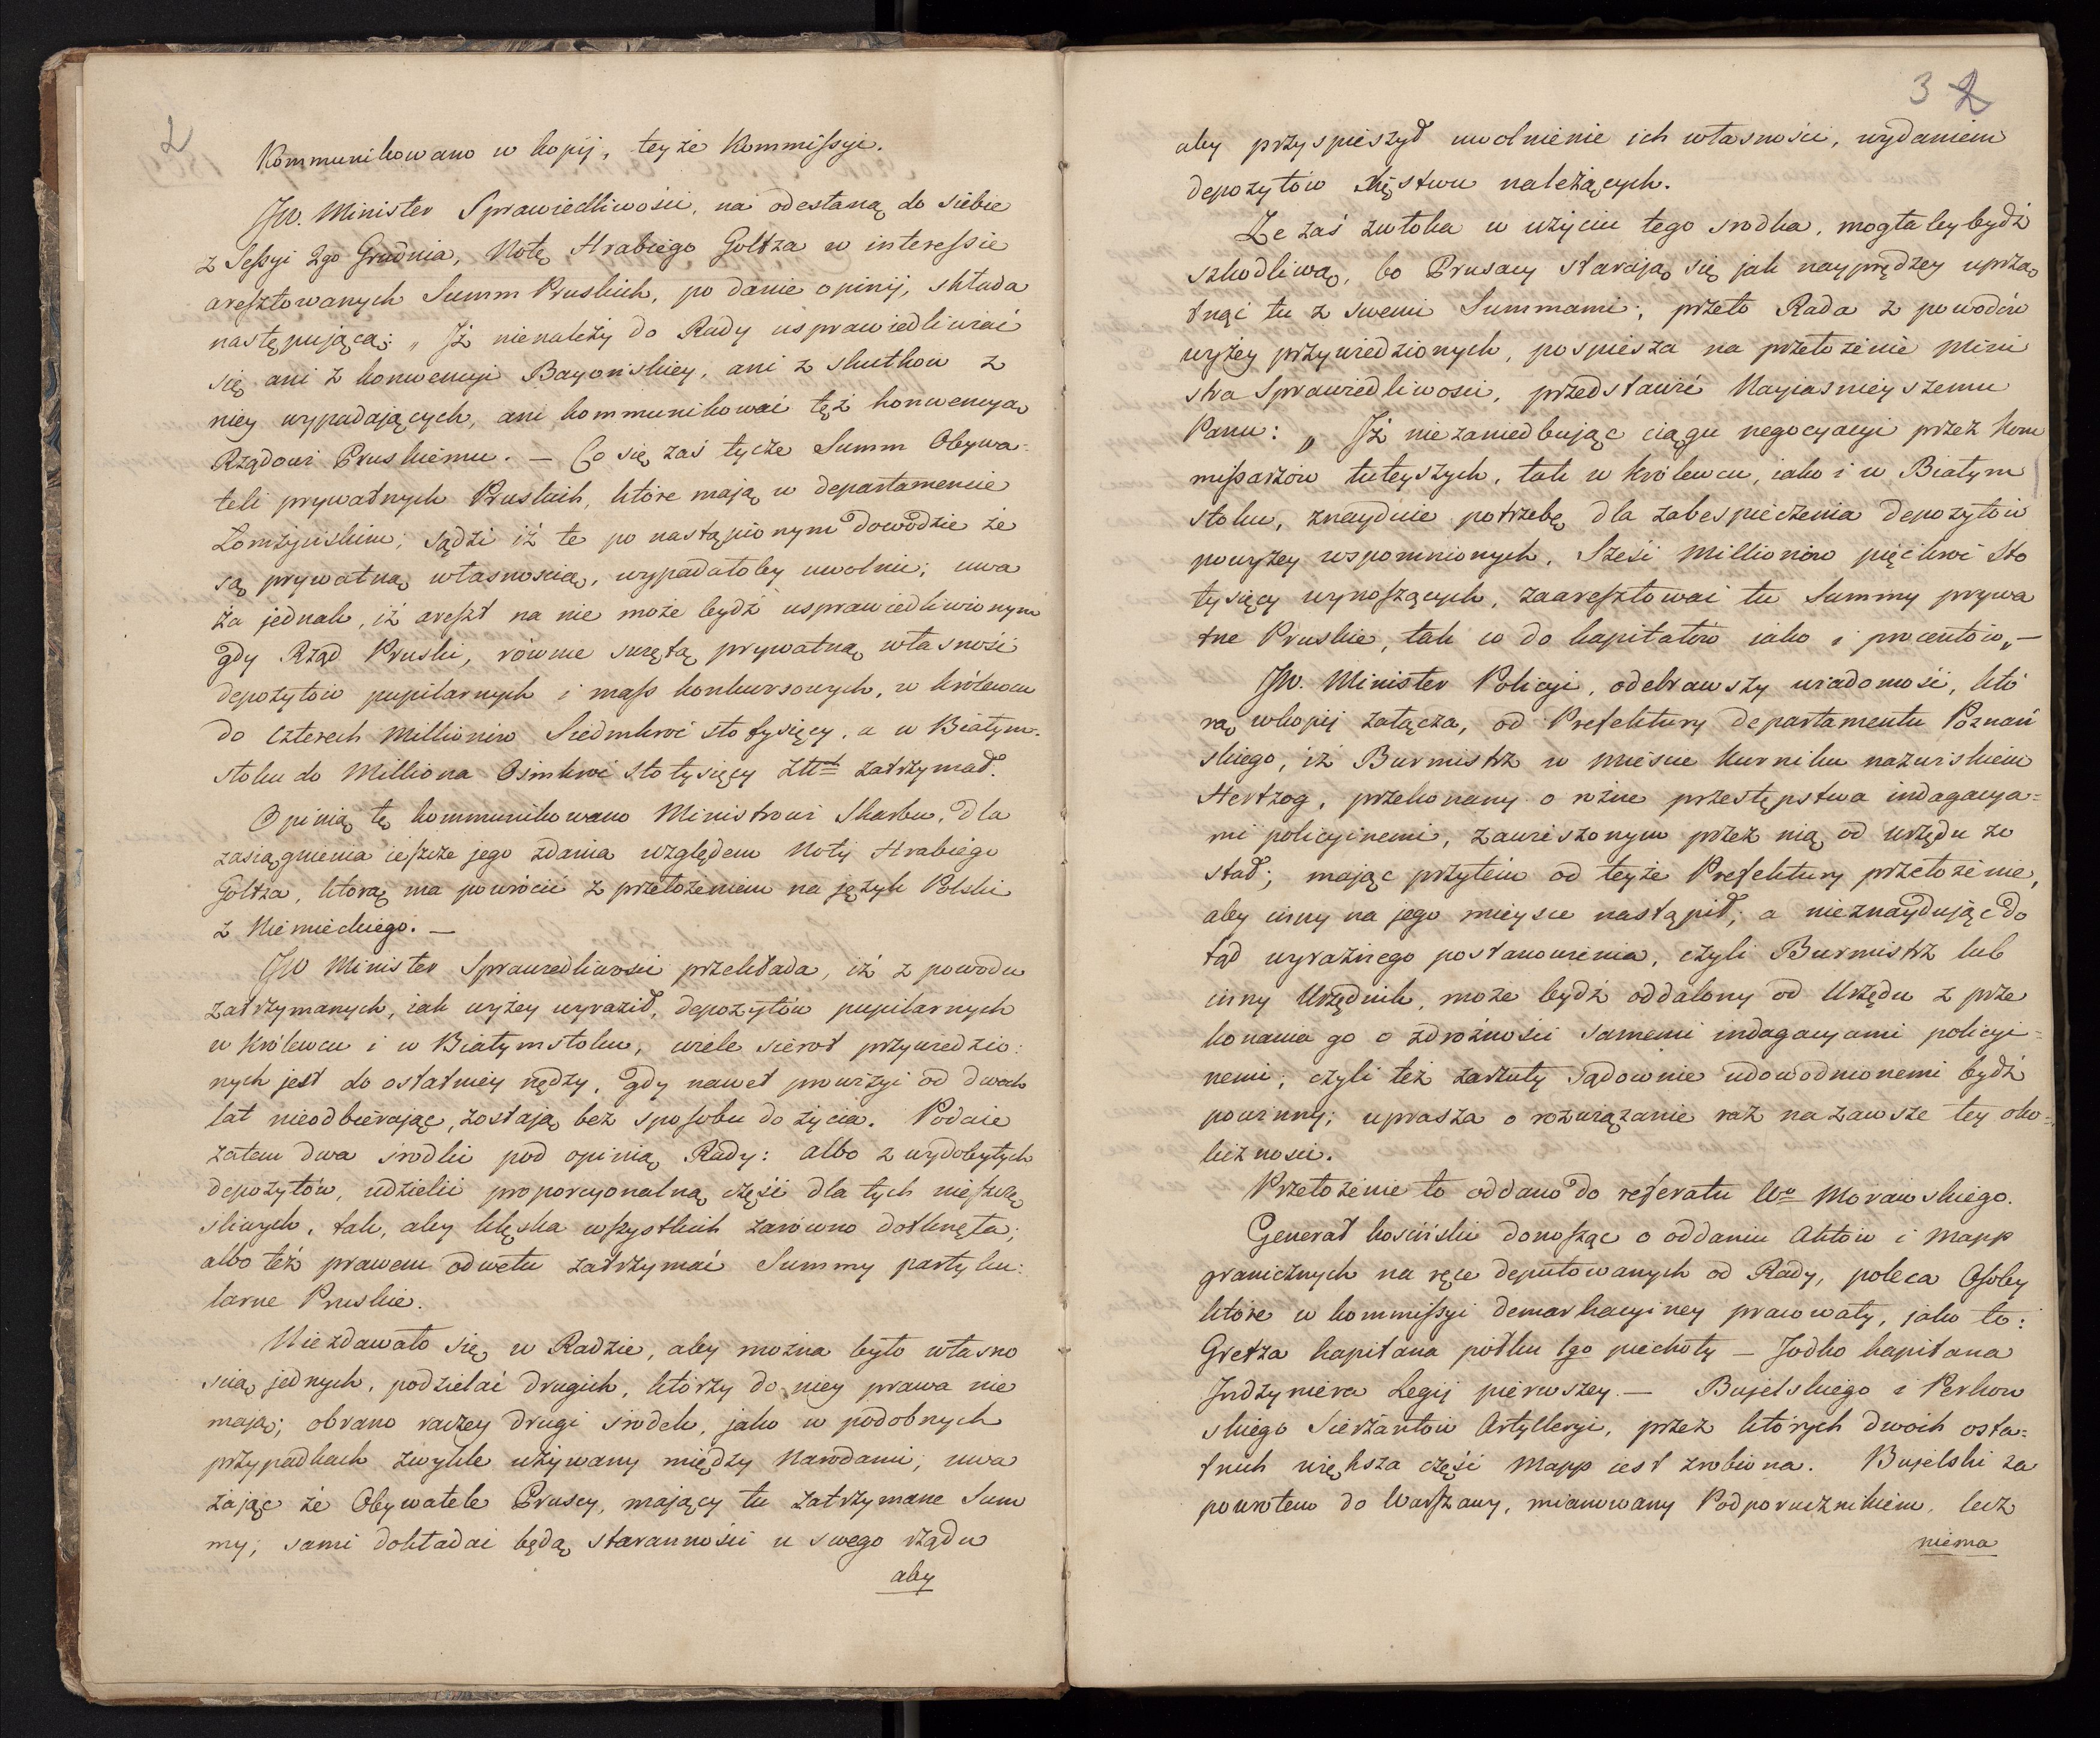 2
Kommunikowano w kopij, teyże Kommissyi.
JW. Minister Sprawiedliwości, na odesłaną do siebie
z Sessyi 2go Grudnia, Notę Hrabiego Goltza w interessie
aresztowanych Summ Pruskich, po danie opinij, składa
następującą: „ Iż nienależy do Rady usprawiedliwiać
się ani z konwencyi Bayońskiey, ani z skutków z
niey wypadających, ani kommunikować tęż konwencyą
Rządowi Pruskiemu. — Co się zaś tycze Summ Obywa-
teli prywatnych Pruskich, które mają w departamencie
Łomżyńskim; sądzi iż te po nastąpionym dowodzie że
są prywatną własnością, wypadałoby uwolnić; uwa
ża jednak, iż areszt na nie może bydź usprawiedliwionym
gdy Rząd Pruski, równie świętą prywatną własność
depozytów pupilarnych i mass konkursowych, w królewcu
do czterech Millionów Siedmkroć sto tysięcy, a w Białym-
stoku do Milliona Ośmkroć sto tysięcy Złłt zatrzymał.
Opinią tę kommunikowano Ministrowi Skarbu, dla
zasiągnienia ieszcze jego zdania względem Noty Hrabiego
Goltza, którą ma powrócić z przełożeniem na język Polski
z Niemieckiego. —
JW Minister Sprawiedliwości przekłada, iż z powodu
zatrzymanych, iak wyżey wyraził, depozytów pupilarnych
w Królewcu i w Białymstoku, wiele sierot przywiedzio:
nych jest do ostatniey nędzy, gdy nawet prowizyi od dwóch
lat nieodbierając, zostają bez sposobu do życia. Podaie
zatem dwa środki pod opinią Rady: albo z wydobytych
depozytów, udzielić proporcyonalną część dla tych nieszczę
śliwych, tak, aby klęska wszystkich zarówno dotknęła;
albo też prawem odwetu zatrzymać Summy partyku:
larne Pruskie.
Niezdawało się w Radzie, aby można było własno
ścią jednych, podzielać drugich, którzy do niey prawa nie
mają; obrano raczey drugi środek, jako w podobnych
przypadkach zwykle używany między Narodami; uwa
żając że Obywatele Pruscy, mający tu zatrzymane Sum
my, sami dokładać będą staranności u swego rządu
aby
3 2
aby przyspieszył uwolnienie ich własności, wydaniem
depozytów Xięstwu należących.
Że zaś zwłoka w użyciu tego srodka, mogłaby bydź
szkodliwą, bo Prusacy starają się jak nayprędzey uprzą
tnąć tu z swemi Summami; przeto Rada z powodów
wyżey przywiedzionych, pospiesza na przełożenie Mini
stra Sprawiedliwości, przedstawić Nayiaśnieyszemu
Panu: „ Iż niezaniedbując ciągu negocyacyi przez Kom
missarzów tuteyszych, tak w Królewcu, iako i w Białym
stoku, znayduie potrzebę dla zabespieczenia depozytów
powyżey wspomnionych, Sześć Millionów pięćkroć Sto
tysięcy wynoszących, zaaresztować tu Summy prywa
tne Pruskie, tak co do kapitałów iako i procentów„ —
JW. Minister Policyi, odebrawszy wiadomość, któ
rą wkopij załącza, od Prefektury departamentu Poznań
skiego, iż Burmistrz w mieście Kurniku nazwiskiem
Hertzog, przekonany o różne przestępstwa indagacya=
mi policyinemi, zawieszonym przez nią od urzędu zo
stał; mając przytem od teyże Prefektury przełożenie,
aby inny na jego mieysce nastąpił; a nieznaydując do
tąd wyraźnego postanowienia, czyli Burmistrz lub
inny Urzędnik, może bydź oddalony od Urzędu z prze
konania go o zdrożności samemi indagacyami policyi=
nemi; czyli też zarzuty sądownie udowodnionemi bydź
powinny; uprasza o rozwiązanie raz na zawsze tey oko=
liczności.
Przełożenie to oddano do referatu Wo Morawskiego.
Generał Kosiński donosząc o oddaniu Aktów i Mapp
granicznych na ręce deputowanych od Rady, poleca Osoby
które w kommissyi demarkacyiney pracowały, jako to:
Gretza kapitana półku 1go piechoty — Jodko kapitana
Indzyniera Legij pierwszey — Bujelskiego i Perkow
skiego Sierżantów Artylleryi, przez których dwóch osta=
tnich większa część Mapp iest zrobiona. Bujelski za
powrotem do Warszawy, mianowany Podporucznikiem, lecz
niema